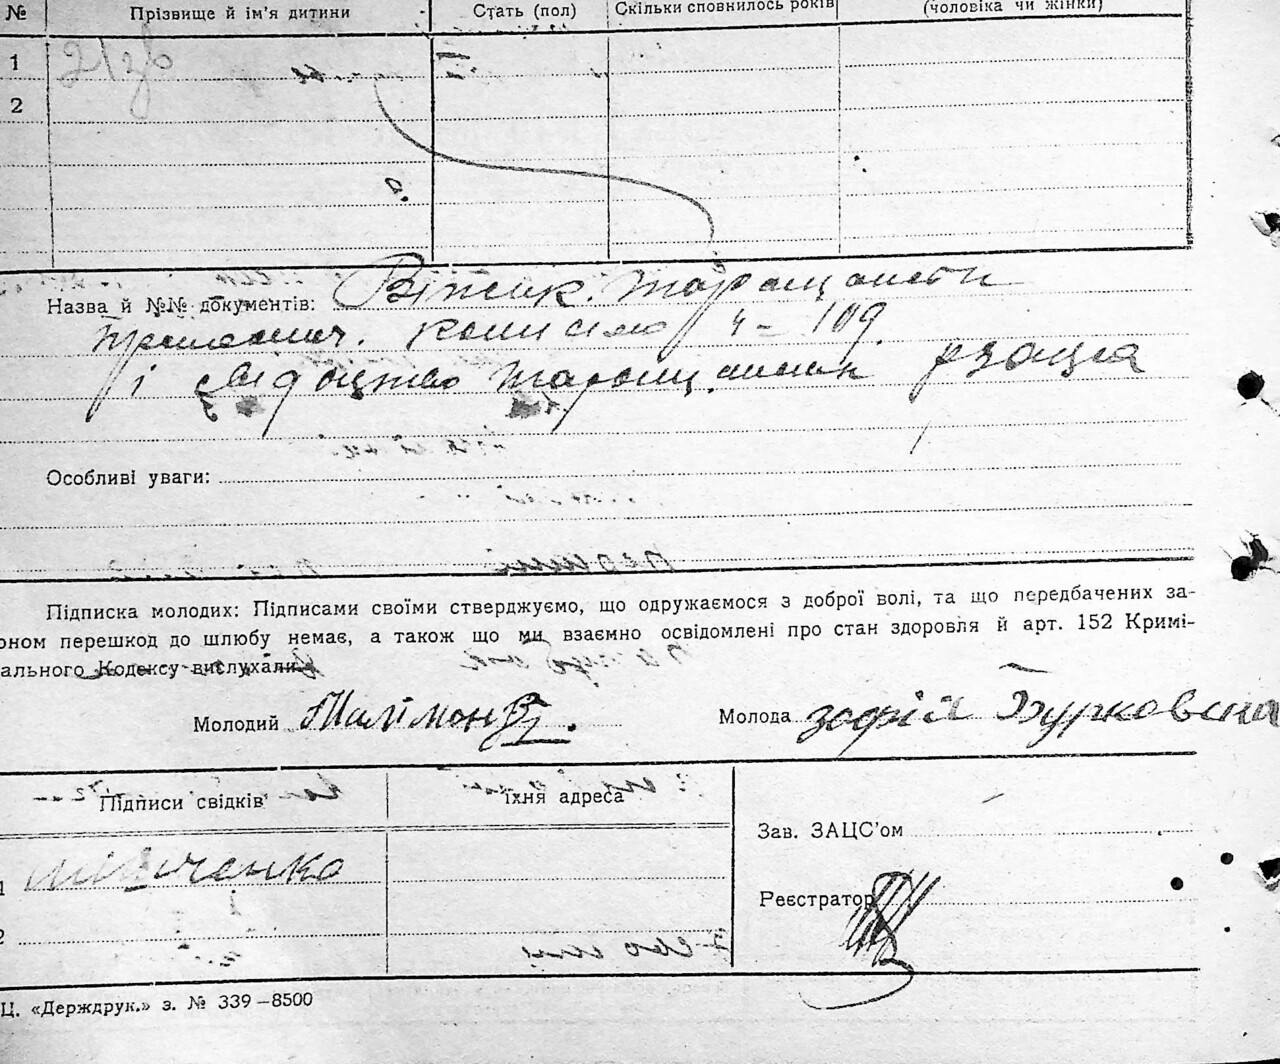 № Прізвище й ім'я дитини Стать (пол) Скільки сповнилось років (чоловіка чи жінки)
1
2
Назва й №№ документів: Війск. Таращанськ
комисією Ч– 109
і свідоцтво Таращанськ рзацса
Особливі уваги:
Підписка молодих: Підписами своїми стверджуємо, що одружаємося з доброї волі, та що передбачених за-
оном перешкод до шлюбу немає, а також що ми взаємно освідомлені про стан здоровля й арт. 152 Кримі-
ального Кодексу вислухали
Молодий Молода Зофія Бурковина
Підписи свідків їхня адреса
Зав. ЗАЦС'ом
1 Мінченко
Реєстратор
2
Ц. «Держдрук.» з. № 339–8500